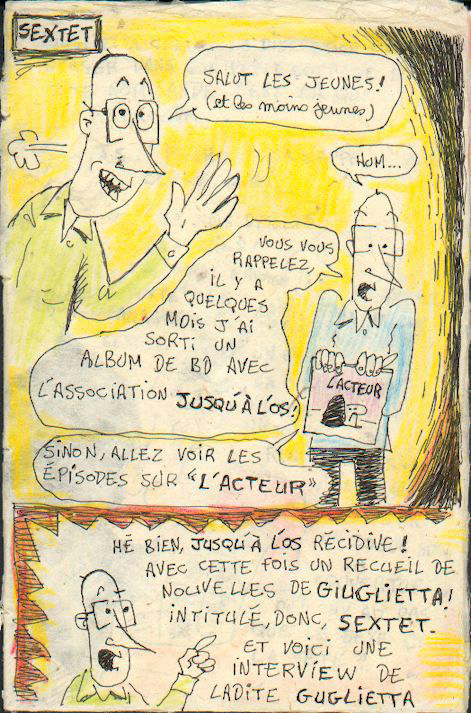 SEXTET
SALUT LES JEUNES!
(et les moins jeunes)
HUM...
VOUS VOUS
RAPPELEZ,
IL Y A
QUELQUES
MOIS J'AI
SORTI UN
ALBUM DE BD AVEC
L'ASSOCIATION JUSQU'À L'OS!
L'ACTEUR
SINON, ALLEZ VOIR LES
ÉPISODES SUR "L'ACTEUR"
HÉ BIEN, JUSQU'À L'OS RÉCIDIVE!
AVEC CETTE FOIS UN RECUEIL DE
NOUVELLES DE GIUGLIETTA!
INTITULÉ, DONC, SEXTET.
ET VOICI UNE
INTERVIEW DE
LADITE GUGLIETTA